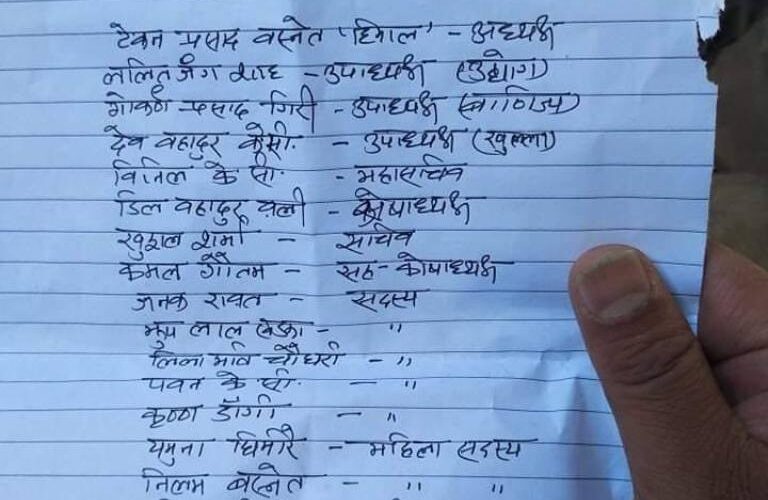 टेकन प्रसाद वस्नेत 'हिमाल' - अध्यक्ष
ललित जंग शाह - उपाध्यक्ष (उद्योग)
गोकर्ण प्रसाद गिरी - उपाध्यक्ष (वाणिज्य)
देव वहादुर केसी. - उपाध्यक्ष (खुल्ला)
विनिल के सी. - महासचिव
डिल वहादुर वली - कोषाध्यक्ष
खुशाल शर्मा - सचिव
कमल गौतम - सह-कोषाध्यक्ष
जनक रावत - सदस्य
लाल - "
चौधरी - "
पवन के सी. - "
कृष्ण डाँगी - "
यमुना घिमिरे - महिला सदस्य
निलम बस्नेत - " "